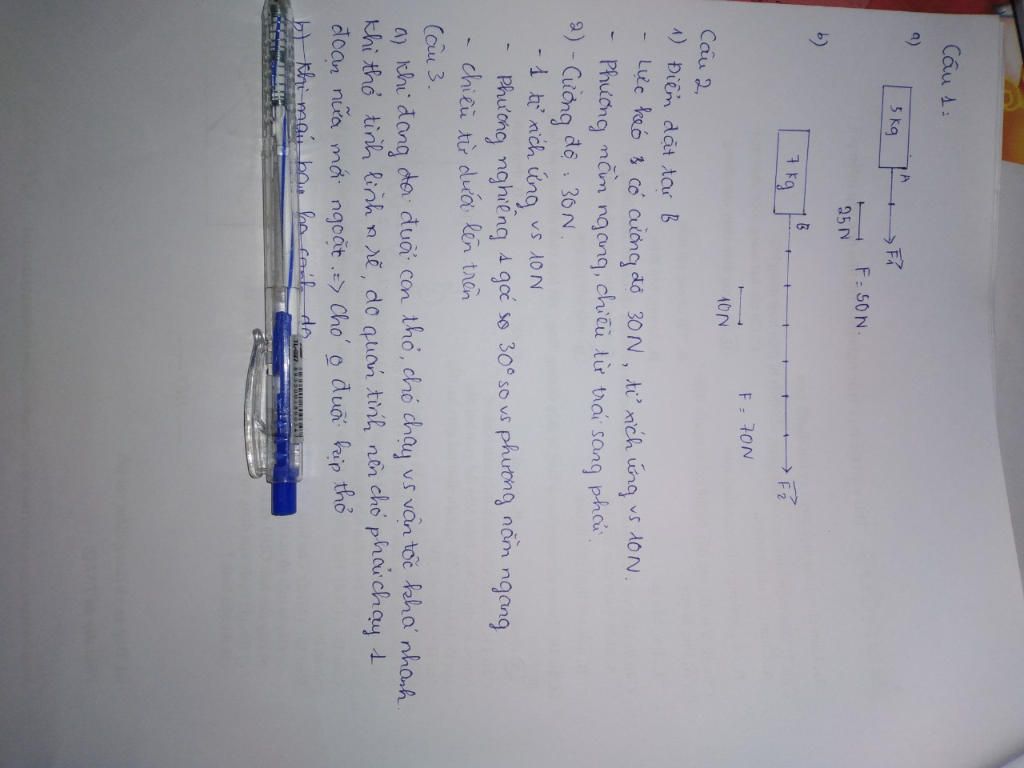 Câu 1:
a)
5 kg
A
F1
25N
F = 50N.
b)
7 kg
B
F2
10N
F = 70N
Câu 2.
1) Điểm đặt tại B
- Lực kéo có cường độ 30N, tỉ xích ứng vs 10N.
- Phương nằm ngang, chiều từ trái sang phải.
2) - Cường độ : 30N.
- 1 tỉ xích ứng vs 10N
- Phương nghiêng 1 góc 30° so vs phương nằm ngang
- chiều từ dưới lên trên
Câu 3.
a) Khi đang đuổi con thỏ, chó chạy vs vận tốc khá nhanh.
Khi thỏ tình lình rẽ, do quán tính nên chó phải chạy 1
đoạn nữa mới ngoặt. => Chó o đuổi kịp thỏ
b) Khi